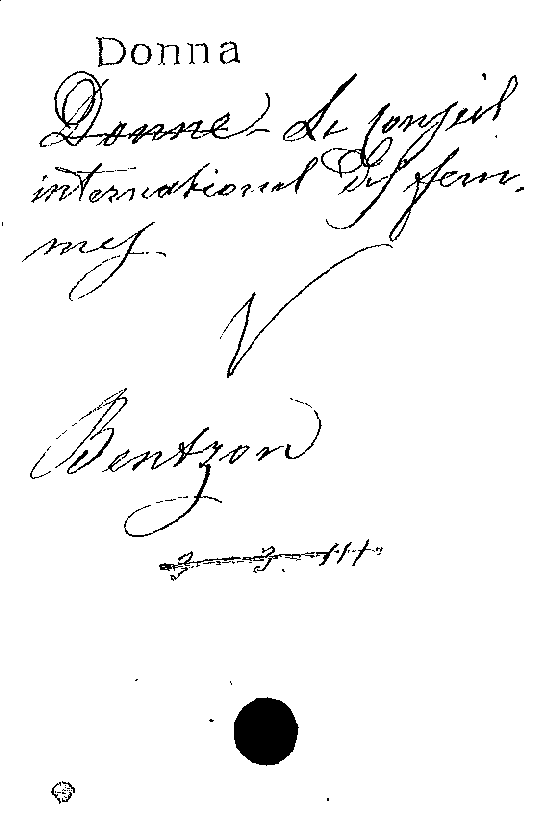 Donna
Donne - Le conseil
international des fem-
mes
V
Bentzon